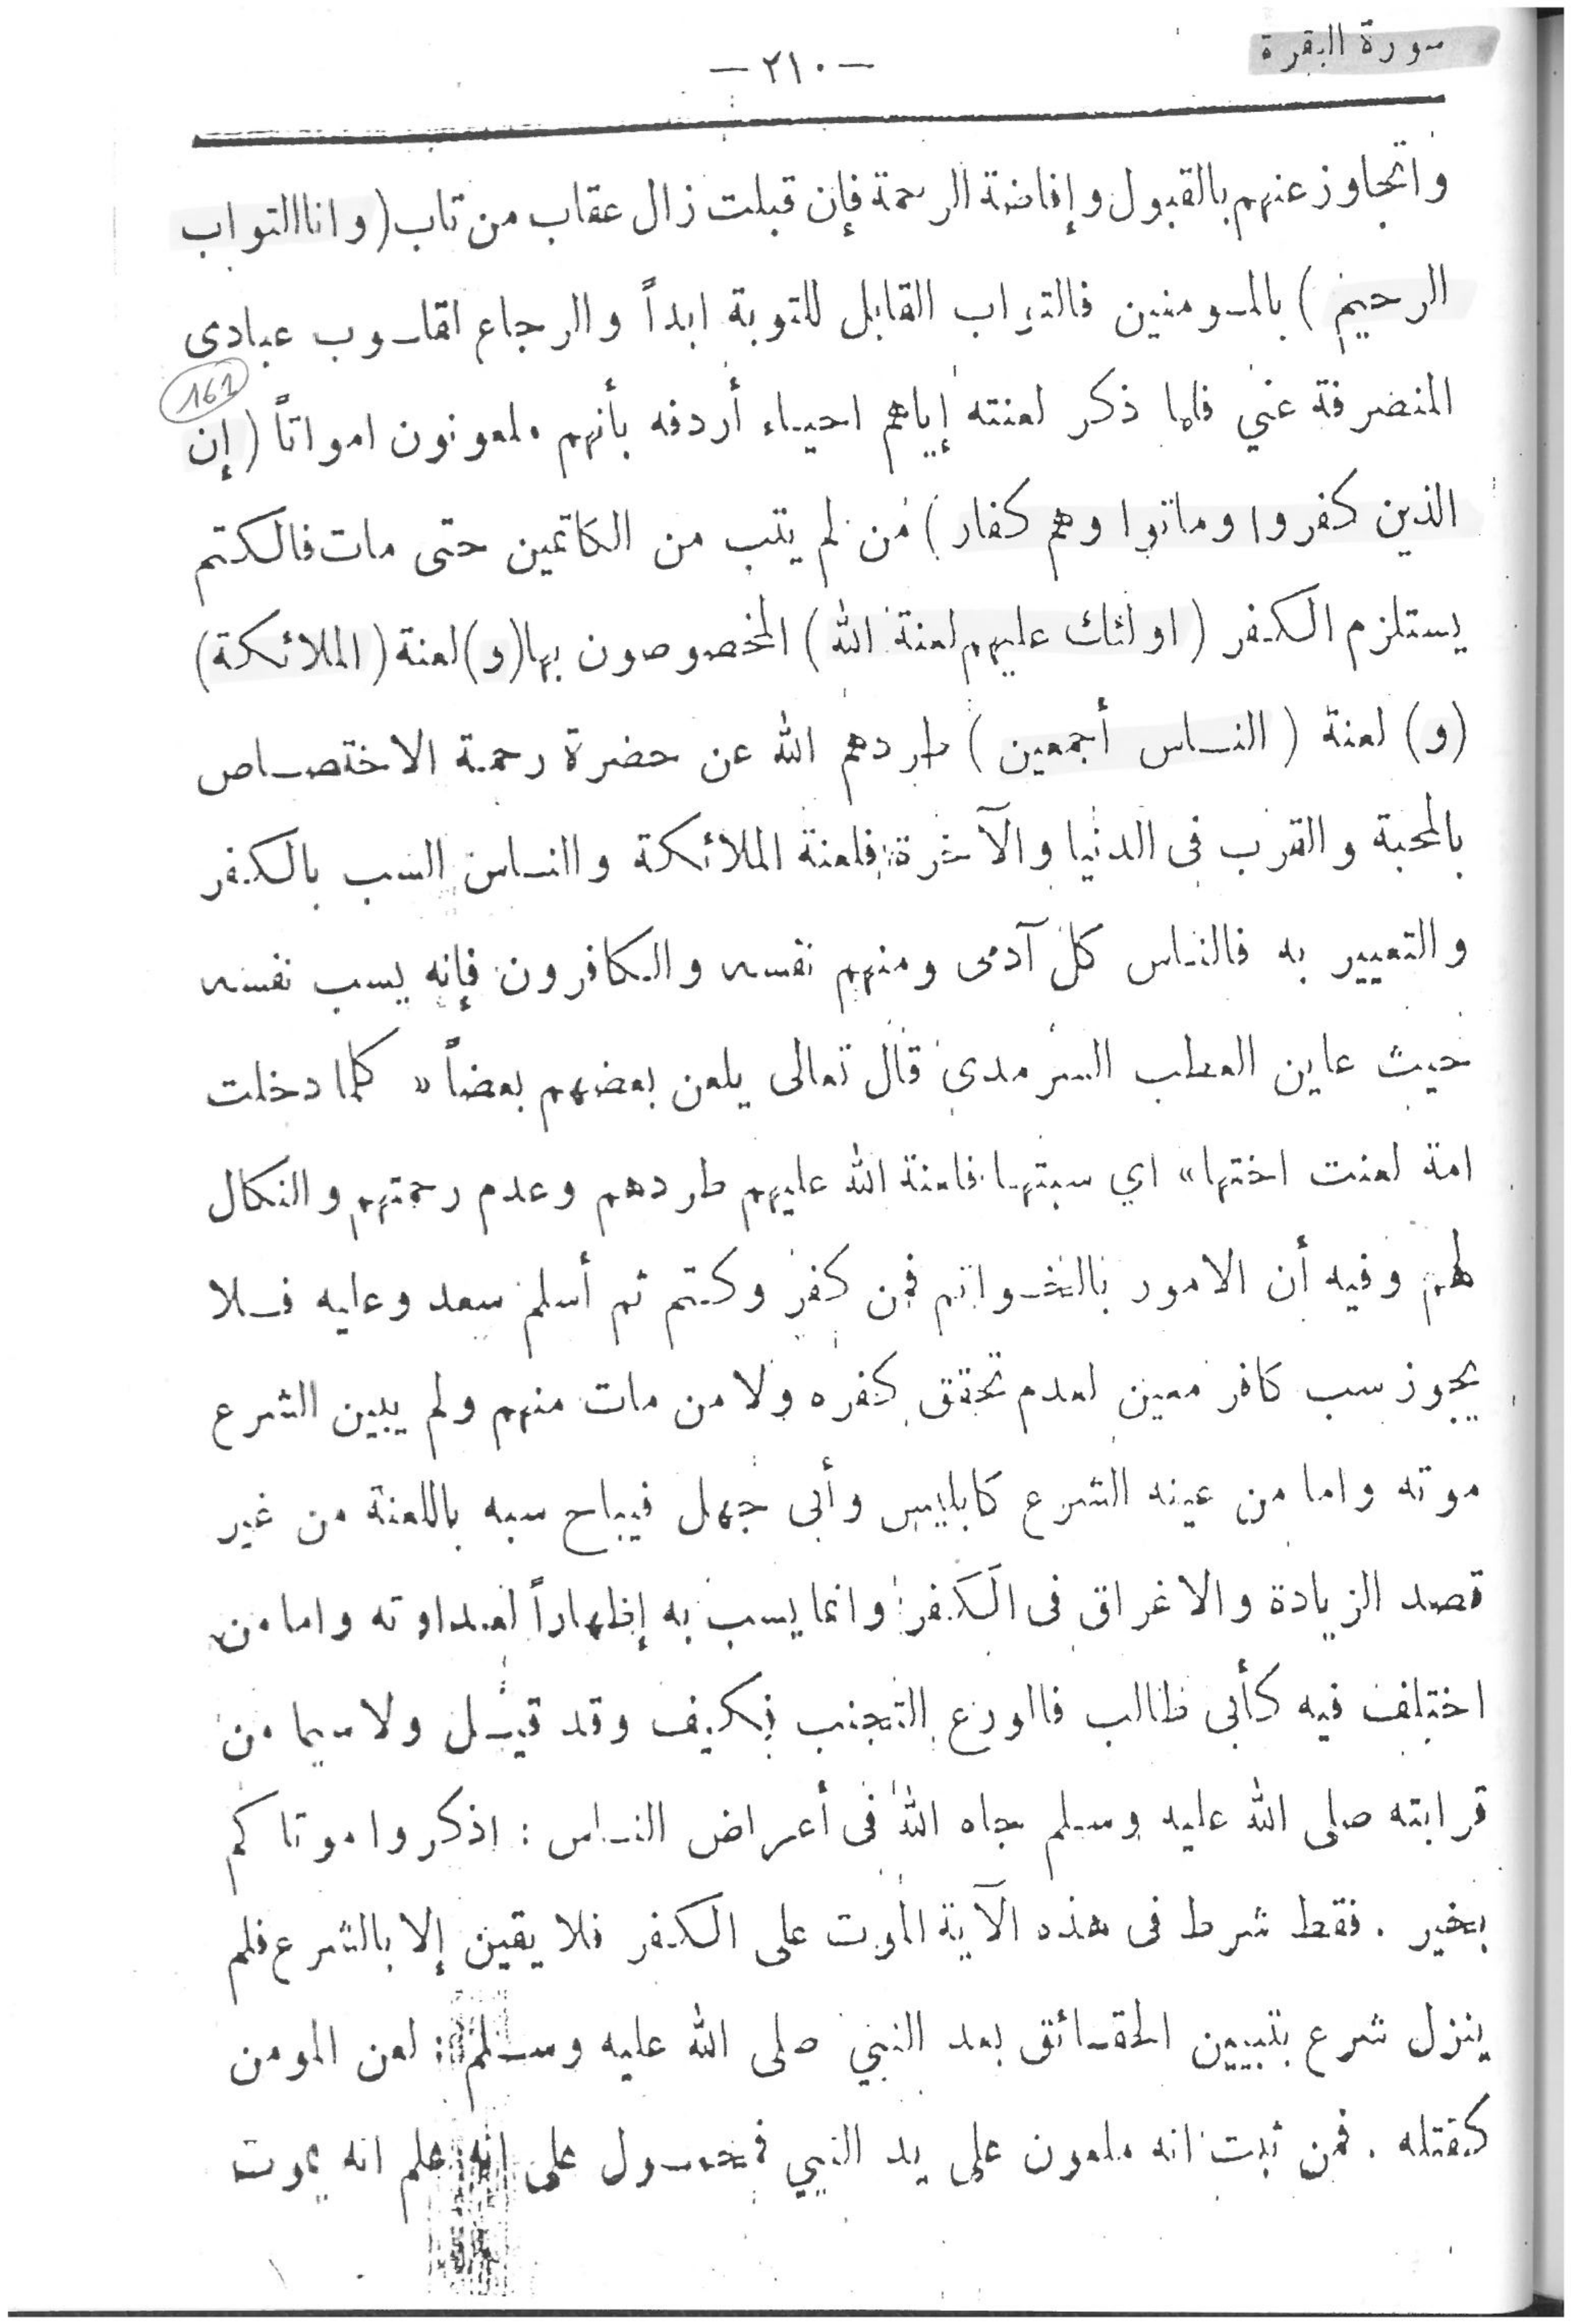 سورة البقرة
— ٢١٠ —
واتجاوز عنهم بالقبول وإفاضة الرحمة فإن قبلت زال عقاب من تاب (وانا التواب
الرحيم) بالمومنين فالتواب القابل للتوبة ابداً والرجاع لقلوب عبادى
المنصرفة عني فلما ذكر لعنته إياهم احياء أردفه بأنهم ملعونون امواتاً (إن
161
الذين كفروا وماتوا وهم كفار) من لم يتب من الكاتمين حتى مات فالكتم
يستلزم الكفر (اولئك عليهم لعنة الله) المخصوصون بها (و) لعنة (الملائكة)
(و) لعنة (الناس أجمعين) طردهم الله عن حضرة رحمة الاختصاص
بالمحبة والقرب فى الدنيا والآخرة فلعنة الملائكة والناس السب بالكفر
والتعيير به فالناس كل آدمى ومنهم نفسه والكافرون فإنه يسب نفسه
حيث عاين العطب السرمدى قال تعالى يلعن بعضهم بعضاً « كلما دخلت
امة لعنت اختها » اي سبتها فلعنة الله عليهم طردهم وعدم رحمتهم والنكال
لهم وفيه أن الامور بالخواتم فمن كفر وكتم ثم أسلم سعد وعليه فلا
يجوز سب كافر معين لعدم تحقق كفره ولا من مات منهم ولم يبين الشرع
موته واما من عينه الشرع كابليس وأبى جهل فيباح سبه باللعنة من غير
قصد الزيادة والاغراق فى الكفر وانما يسب به إظهاراً لعداوته واما من
اختلف فيه كأبى طالب فالورع التجنب فكيف وقد قيل ولاسيما من
قرابته صلى الله عليه وسلم جاه الله فى أعراض الناس : اذكروا موتاكم
بخير . فقط شرط فى هذه الآية الموت على الكفر فلا يقين إلا بالشرع فلم
ينزل شرع بتبيين الحقائق بعد النبي صلى الله عليه وسلم : لعن المومن
كقتله . فمن ثبت انه ملعون على يد النبي فمحمول على انه علم انه يموت